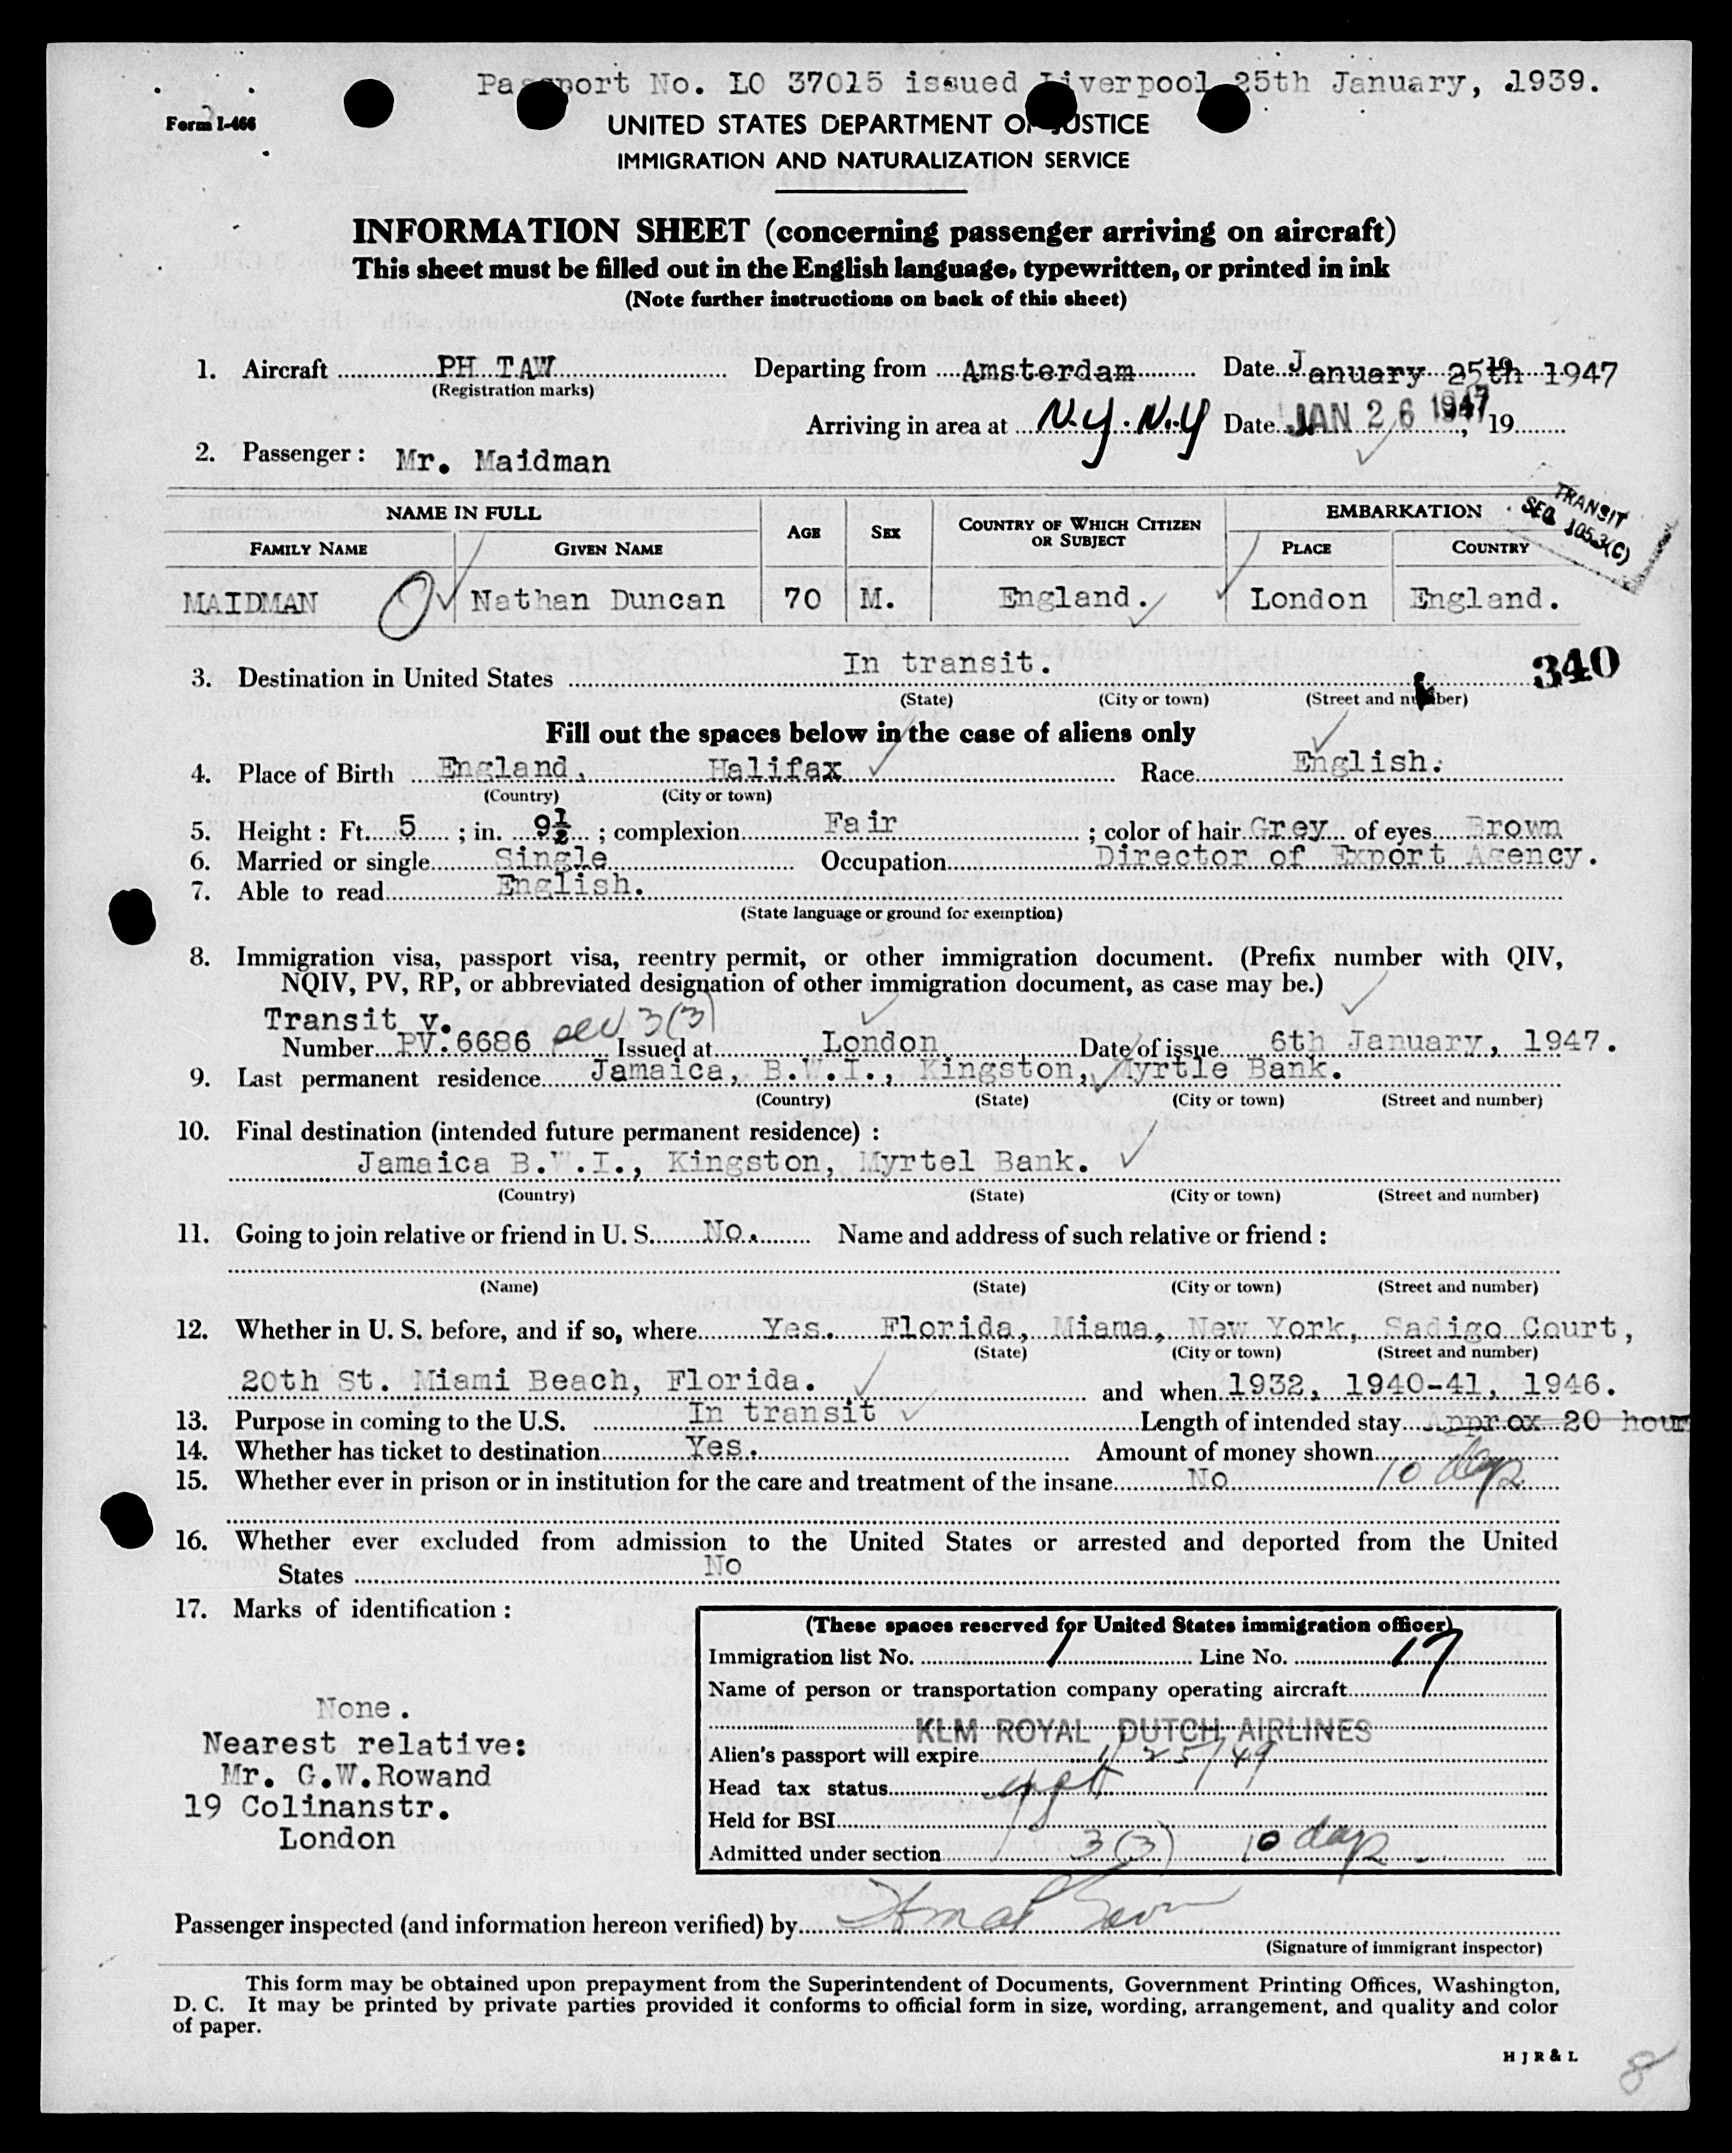 Passport No. LO 37015 issued Liverpool 25th January, 1939.
Form I-466
UNITED STATES DEPARTMENT OF JUSTICE
IMMIGRATION AND NATURALIZATION SERVICE
INFORMATION SHEET (concerning passenger arriving on aircraft)
This sheet must be filled out in the English language, typewritten, or printed in ink
(Note further instructions on back of this sheet)
1. Aircraft PH TAW Departing from Amsterdam Date January 25th 1947
(Registration marks)
Arriving in area at N.Y. N.Y Date JAN 26 1947, 19
2. Passenger: Mr. Maidman
NAME IN FULL AGE SEX COUNTRY OF WHICH CITIZEN OR SUBJECT EMBARKATION
TRANSIT
SEQ 1053(C)
FAMILY NAME GIVEN NAME PLACE COUNTRY
MAIDMAN Nathan Duncan 70 M. England. London England.
3. Destination in United States In transit. 340
(State) (City or town) (Street and number)
Fill out the spaces below in the case of aliens only
4. Place of Birth England, Halifax Race English.
(Country) (City or town)
5. Height: Ft. 5; in. 9½; complexion Fair; color of hair Grey of eyes Brown
6. Married or single Single Occupation Director of Export Agency.
7. Able to read English.
(State language or ground for exemption)
8. Immigration visa, passport visa, reentry permit, or other immigration document. (Prefix number with QIV,
NQIV, PV, RP, or abbreviated designation of other immigration document, as case may be.)
Transit v. sec 3(3)
Number PV.6686 Issued at London Date of issue 6th January, 1947.
9. Last permanent residence Jamaica, B.W.I., Kingston, Myrtle Bank.
(Country) (State) (City or town) (Street and number)
10. Final destination (intended future permanent residence):
Jamaica B.W.I., Kingston, Myrtel Bank.
(Country) (State) (City or town) (Street and number)
11. Going to join relative or friend in U. S. No. Name and address of such relative or friend:
(Name) (State) (City or town) (Street and number)
12. Whether in U. S. before, and if so, where Yes. Florida, Miama, New York, Sadigo Court,
(State) (City or town) (Street and number)
20th St. Miami Beach, Florida. and when 1932, 1940-41, 1946.
13. Purpose in coming to the U.S. In transit Length of intended stay Approx 20 hour
14. Whether has ticket to destination Yes. Amount of money shown
15. Whether ever in prison or in institution for the care and treatment of the insane No 10 days
16. Whether ever excluded from admission to the United States or arrested and deported from the United
States No
17. Marks of identification:
None.
Nearest relative:
Mr. G.W.Rowand
19 Colinanstr.
London
(These spaces reserved for United States immigration officer)
Immigration list No. 1 Line No. 17
Name of person or transportation company operating aircraft
KLM ROYAL DUTCH AIRLINES
Alien's passport will expire 1/25/49
Head tax status
Held for BSI
Admitted under section 3(3) 10 days
Passenger inspected (and information hereon verified) by
(Signature of immigrant inspector)
This form may be obtained upon prepayment from the Superintendent of Documents, Government Printing Offices, Washington,
D. C. It may be printed by private parties provided it conforms to official form in size, wording, arrangement, and quality and color
of paper.
H J R & L
8